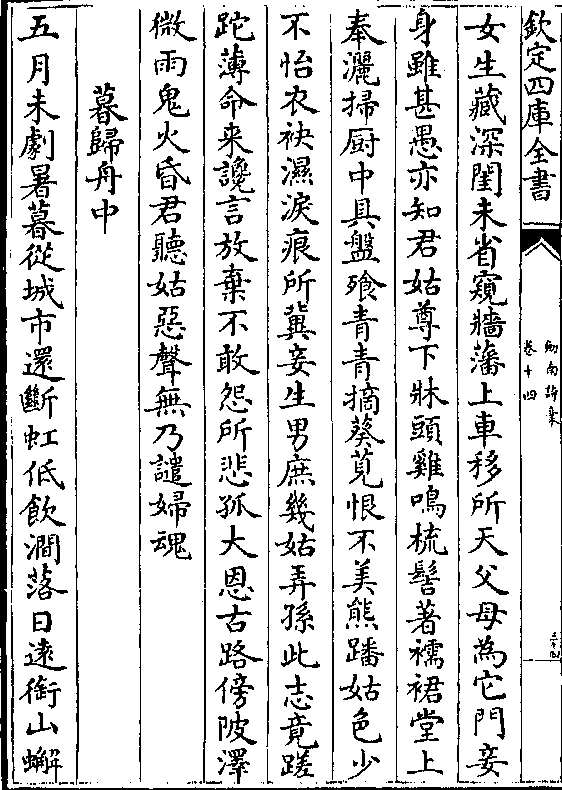 欽定四庫全書
劍南詩稾
卷十四
女生藏深閨未省窺牆藩上車移所天父母為它門妾
身雖甚愚亦知君姑尊下牀頭雞鳴梳髻著襦裙堂上
奉灑掃厨中具盤飱青青摘葵莧恨不美熊蹯姑色少
不怡衣袂濕淚痕所冀妾生男庶幾姑弄孫此志竟蹉
跎薄命来讒言放棄不敢怨所悲孤大恩古路傍陂澤
微雨鬼火昏君聽姑惡聲無乃譴婦魂
暮歸舟中
五月未劇暑暮從城市還斷虹低飲澗落日遠銜山蠏